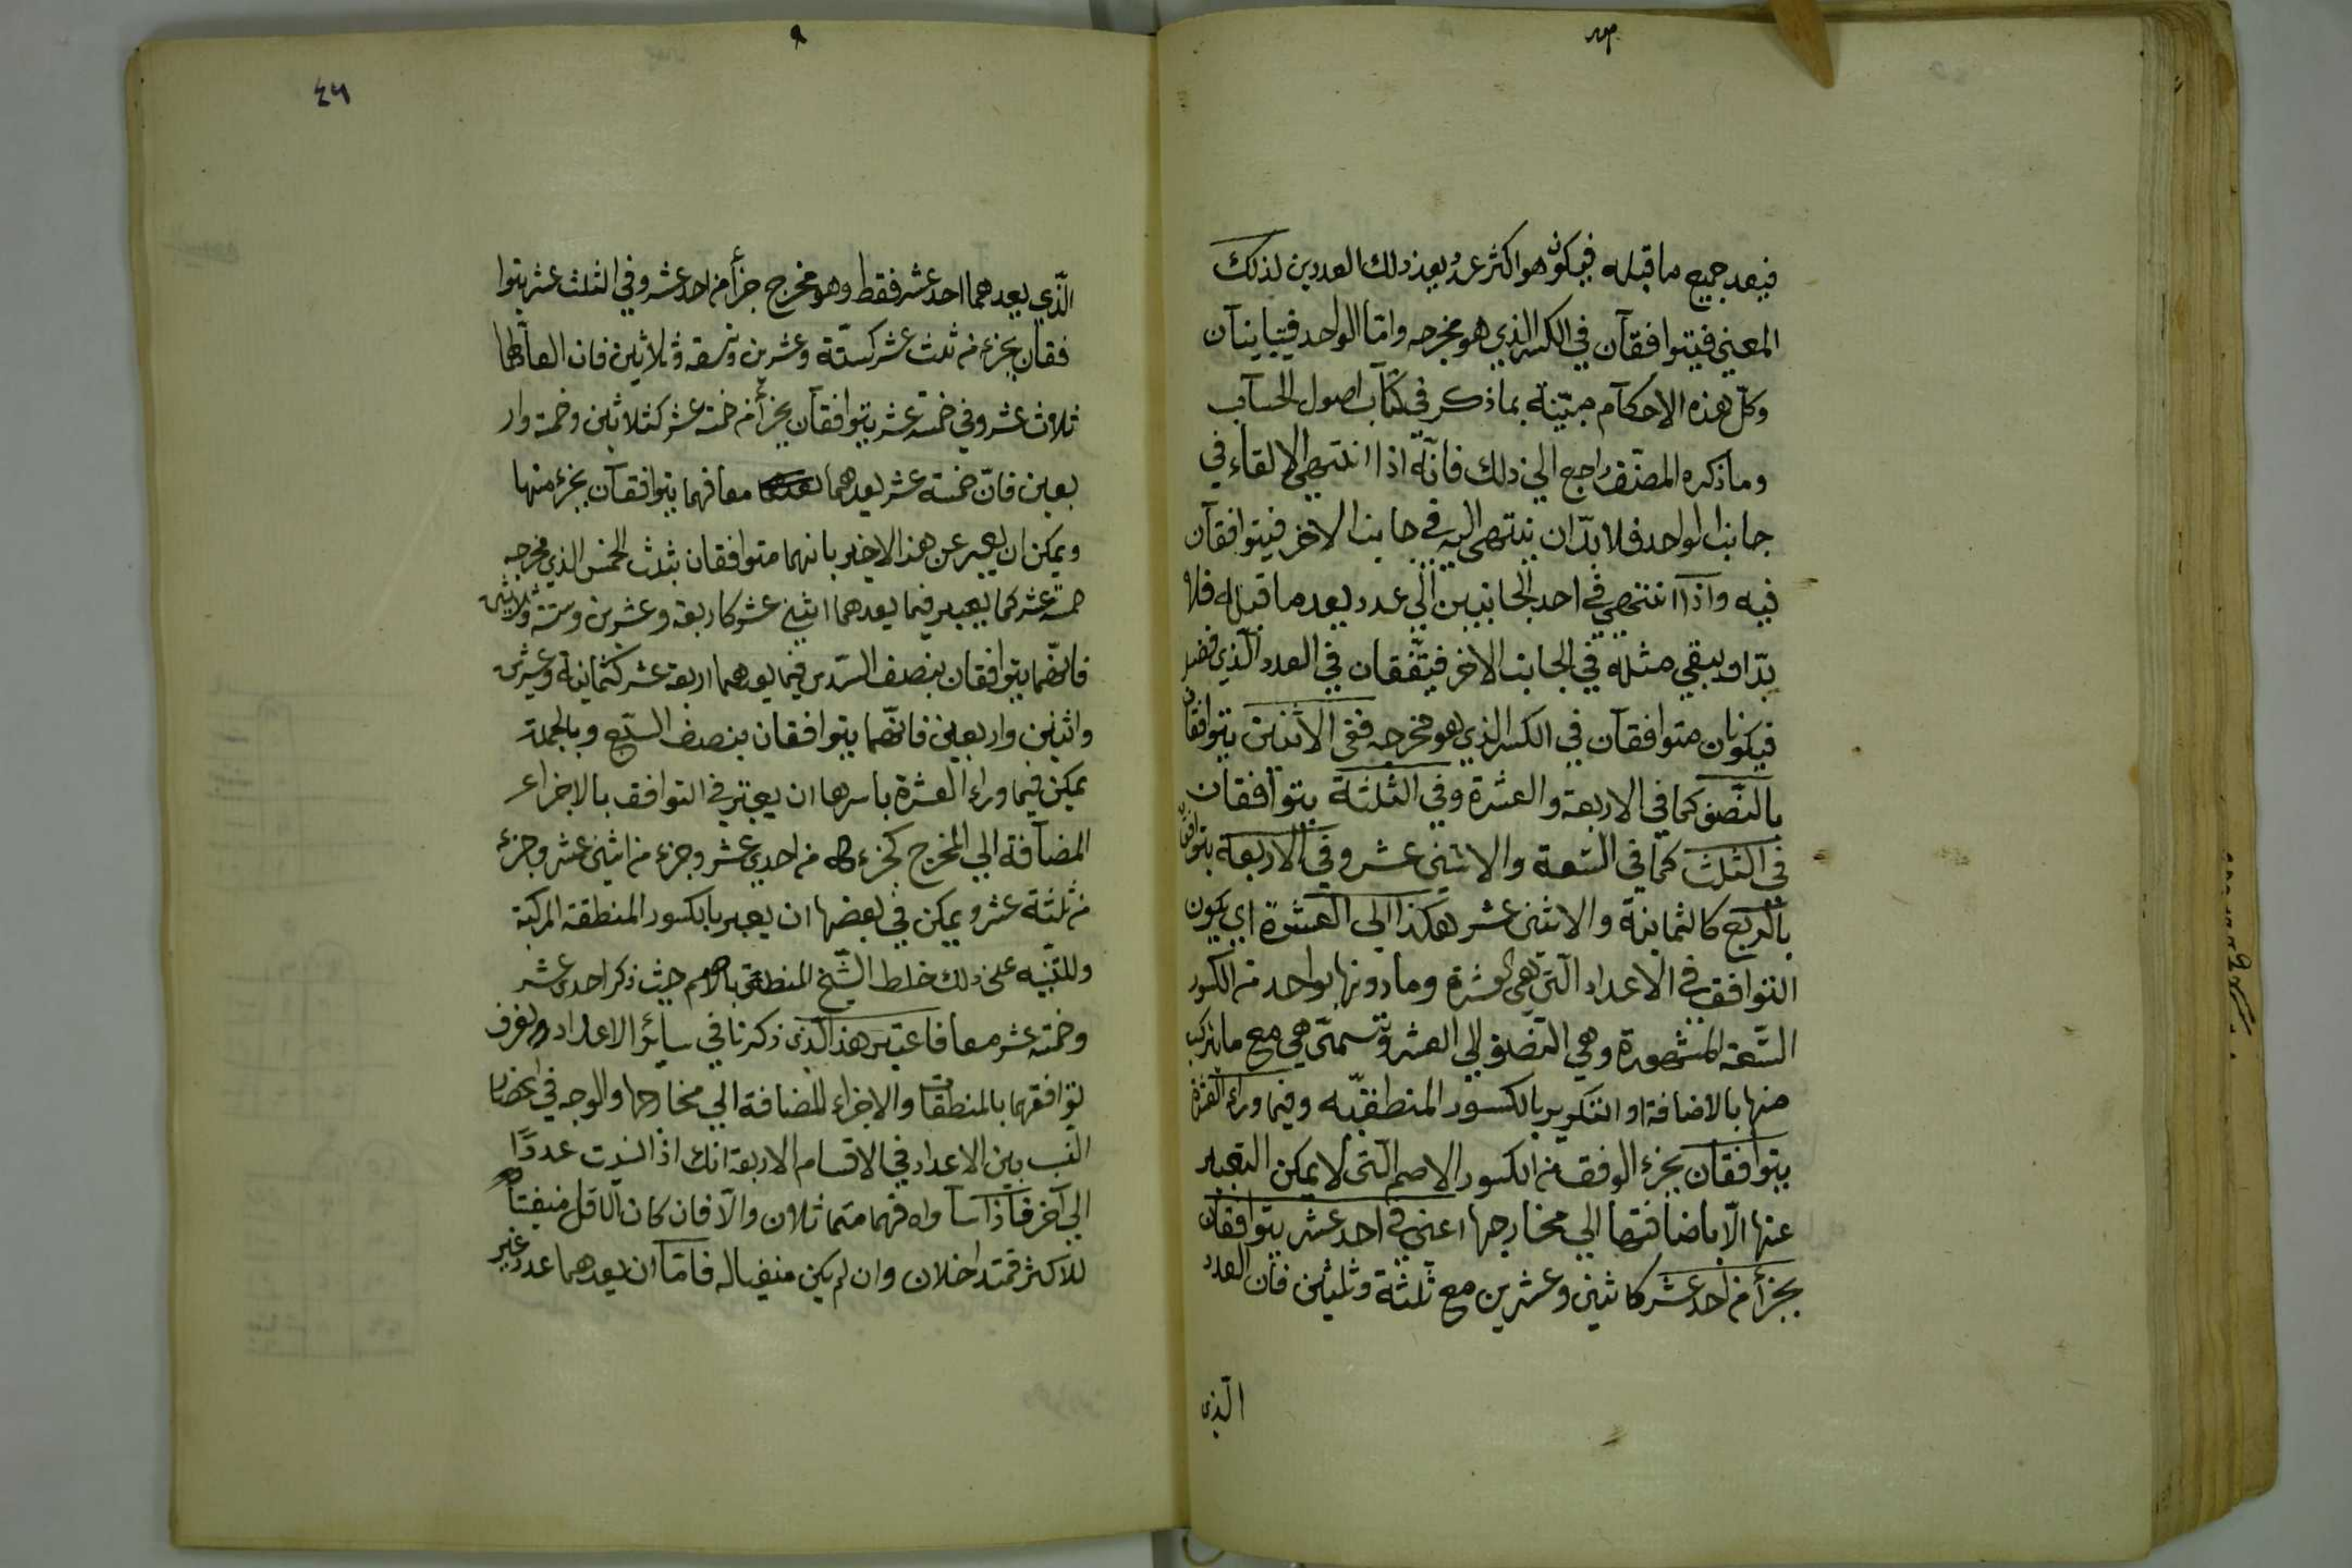 فيعد جميع ما قبله فيكون هو اكثر عدد يعد ذلك العددين لذلك
المعني فيتوافقآن في الكسر الذي هو مخرجه وامّا الواحد فيتباينآن
وكلّ هذه الاحكآم مبيّنة بما ذكر في كتآب اصول الحسآب
وما ذكره المصنّف راجع الي ذلك فانّه اذا انتهي الالقاء في
جانب الواحد فلا بدّ ان ينتهي اليه في جانب الاخر فيتوافقآن
فيه واذا انتهي في احد الجانبين الي عدد يعد ما قبله فلا
بدّ ان يبقي مثله في الجانب الاخر فيتّفقان في العدد الّذي
فيكونان متوافقآن في الكسر الذي هو مخرجه ففي الاثنين يتوافقان
بالنّصف كما في الاربعة والعشرة وفي الثلثة يتوافقان
في الثلث كما في التسعة والاثني عشر وفي الاربعة يتوافقان
بالربع كالثمانية والاثني عشر هكذا الي العشرة اي يكون
التوافق في الاعداد الّتي هي العشرة وما دونها بواحد من الكسور
التّسعة المشهورة وهي النصف الي العشر وتسمّي هي مع ما يتركب
منها بالاضافة او التكرير بالكسور المنطقيّه وفيما وراء العشرة
يتوافقآن بجزء الوفق من الكسور الاصم الّتي لا يمكن التعبير
عنها الّا باضافتها الي مخارجها اعني في احد عشر يتوافقان
بجزأ من احد عشر كاثنين وعشرين مع ثلثة وثلثين فان العدد
الّذي
٤٦
الّذي يعدهما احد عشر فقط وهو مخرج جزأ من احد عشر وفي الثلث عشر يتوا
فقان بجزء من ثلث عشر كستّة وعشرين وتسعة وثلاثين فان العآد لهما
ثلاث عشر وفي خمسة عشر يتوافقآن بجزأ من خمسة عشر كثلاثين وخمسة وار
بعين فانّ خمسة عشر يعدهما معا فهما يتوافقآن بجزء منها
ويمكن ان يعبر عن هذا الاخير بانهما متوافقان بثلث الخمس الذي مخرجه
خمسة عشر كما يعبر فيما يعدهما اثني عشر كاربعة وعشرين وستة وثلاثين
فانّهما يتوافقان بنصف السّدس فيما يعدهما اربعة عشر كثمانية وعشرين
واثنين واربعين فانّهما يتوافقان بنصف السّبع وبالجملة
يمكن فيما وراء العشرة باسرها ان يعتبر في التوافق بالاجزاء
المضآفة الي المخرج كجزء من احدي عشر وجزء من اثني عشر وجزء
من ثلثة عشر ويمكن في بعضها ان يعبر بالكسور المنطقة المركبة
وللتنبيه علي ذلك خلط الشّيخ المنطق بالاصم حيث ذكر احد عشر
وخمسة عشر معا فاعتبر هذا الّذي ذكرنا في سائر الاعداد ولتعرف
توافقهما بالمنطقات والاجزاء المضافة الي مخارجها والوجه في انحصار
النسب بين الاعداد في الاقسام الاربعة انك اذا نسبت عددًا
الي آخر فاذا ساواه فهما متماثلان والّا فان كان الاقل مفنيًا
للاكثر فمتداخلان وان لم يكن مفنيا له فامّا ان يعدهما عدد غير